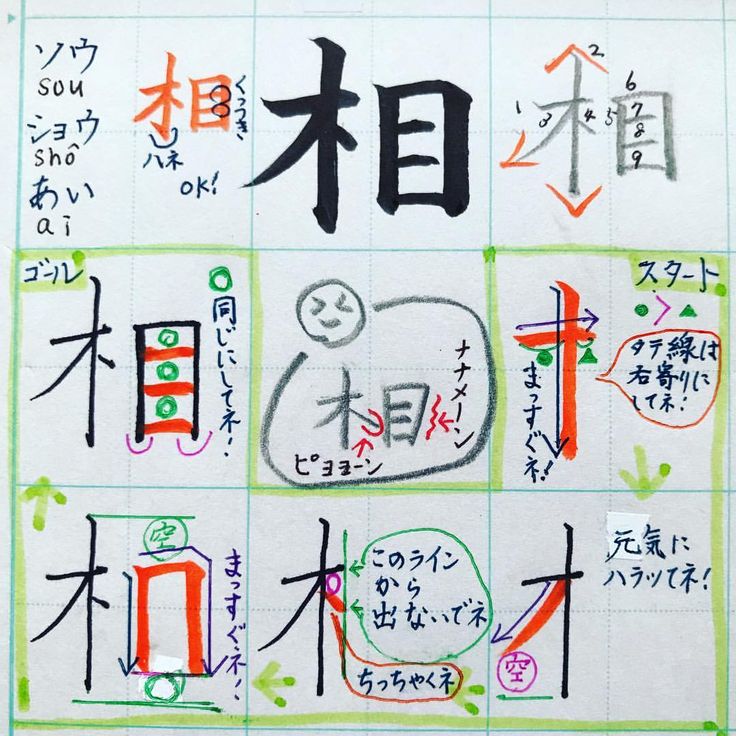 ソウ
sou
ショウ
shô
あい
ai
相
くっつき
ハネ
OK!
相
相
1
2
3
4
5
6
7
8
9
スタート
タテ線は
右寄りに
してネ!
まっすぐネ!
元気に
ハラッてネ!
空
このライン
から
出ないでネ
ちっちゃくネ
空
まっすぐネ!
ゴール
相
同じにしてネ!
相
ナナメーン
ピョョーン